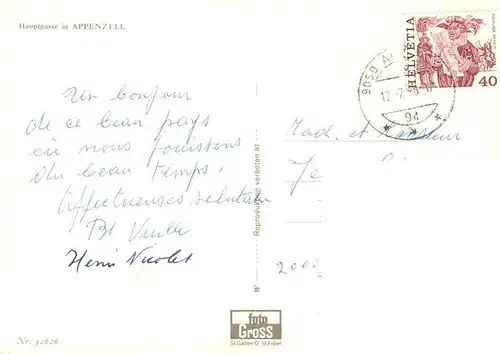 Hauptgasse in APPENZELL
Un bonjour
de ce beau pays
où nous jouissons
du beau temps.
Affectueuses salutations
Henri Nicolet
Nr. 32626
Reproduktion verboten
foto
GROSS
St.Gallen O St.Fiden
HELVETIA
40
9050
12-7
9d
Mad. et Monsieur
2000